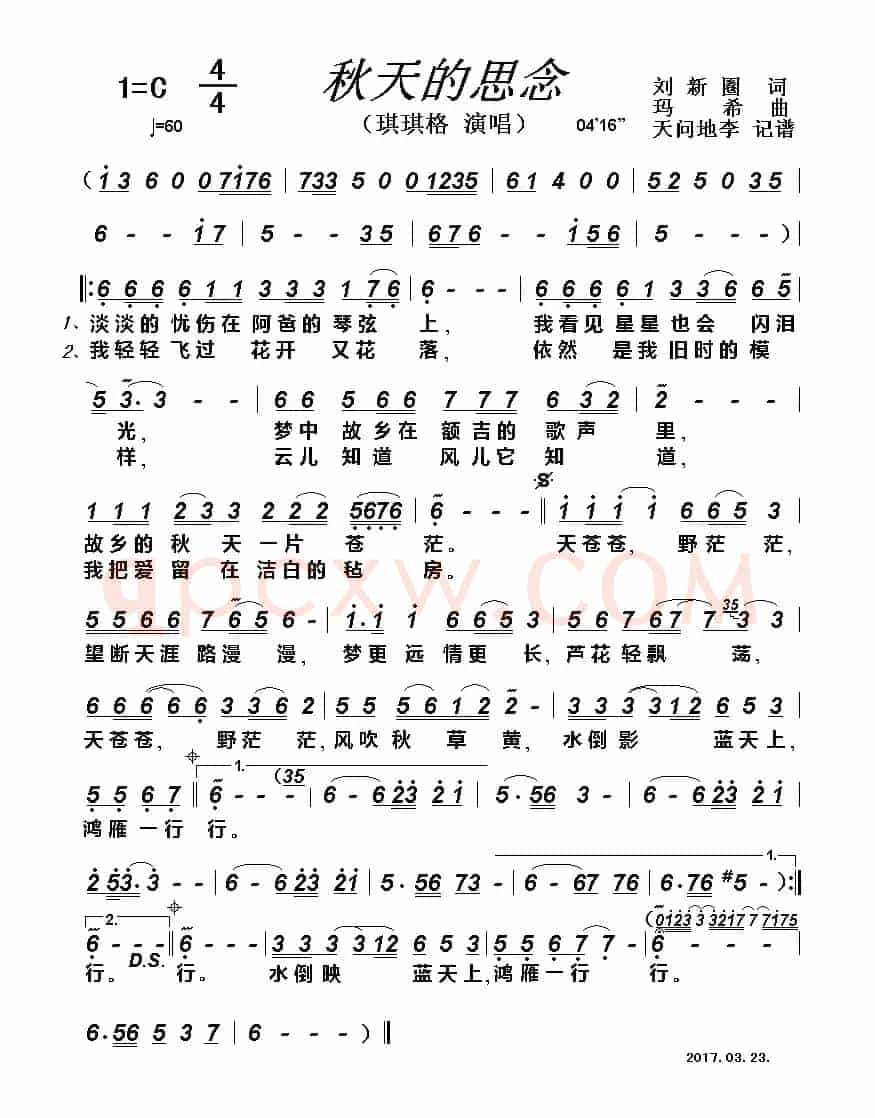 1=C 4/4 秋天的思念 刘新圈 词
玛希 曲
♩=60 （琪琪格 演唱） 04'16” 天问地李 记谱
（i 3 6 0 0 7i76 | 733 5 0 0 1235 | 61 4 0 0 | 52 5 0 35 |
6 - - i7 | 5 - - 35 | 676 - i56 | 5 - - - ）|
||: 6 6 6 6 1 1 3 3 3 1 7 6 | 6 - - - | 6 6 6 6 1 3 3 6 6 5 |
1、淡淡的 忧伤在 阿爸的 琴弦 上， 我看见 星星也会 闪泪
2、我轻轻 飞过 花开 又花 落， 依然 是我 旧时的 模
5 3· 3 - - | 6 6 5 6 6 7 7 7 6 3 2 | 2 - - - |
光， 梦中 故乡在 额吉的 歌声 里，
样， 云儿 知道 风儿它 知 道，
1 1 1 2 3 3 2 2 2 5676 | 6 - - - || i i i i 6 6 5 3 |
故乡的 秋 天一片 苍 茫。 天苍苍，野茫 茫，
我把爱 留 在 洁白的毡 房。
qpcxw.COM
5 5 6 6 7 6 5 6 - | i· i i 6 6 5 3 | 5 6 7 6 7 7 35 3 3 |
望断天涯 路漫 漫， 梦更 远 情更 长，芦花轻飘 荡，
6 6 6 6 6 3 3 3 6 2 | 5 5 5 6 1 2 2 - | 3 3 3 3 1 2 6 5 3 |
天苍苍， 野茫 茫，风吹 秋 草 黄， 水倒影 蓝天上，
5 5 6 7 || 1. 6 - - （35 | 6 - 6 23 2i | 5· 56 3 - | 6 - 6 23 2i |
鸿雁一行 行。
2 53· 3 - - | 6 - 6 23 2i | 5· 56 73 - | 6 - 67 76 | 1. 6· 76 #5 - ）:||
2. 6 - - - || 6 - - - | 3 3 3 3 12 6 5 3 | 5 5 6 7 - | （0123 3 3217 7 7i75 6 - - - |
行。 D.S. 行。 水倒映 蓝天上，鸿雁一行 行。
6· 56 5 3 7 | 6 - - - ）||
2017. 03. 23.